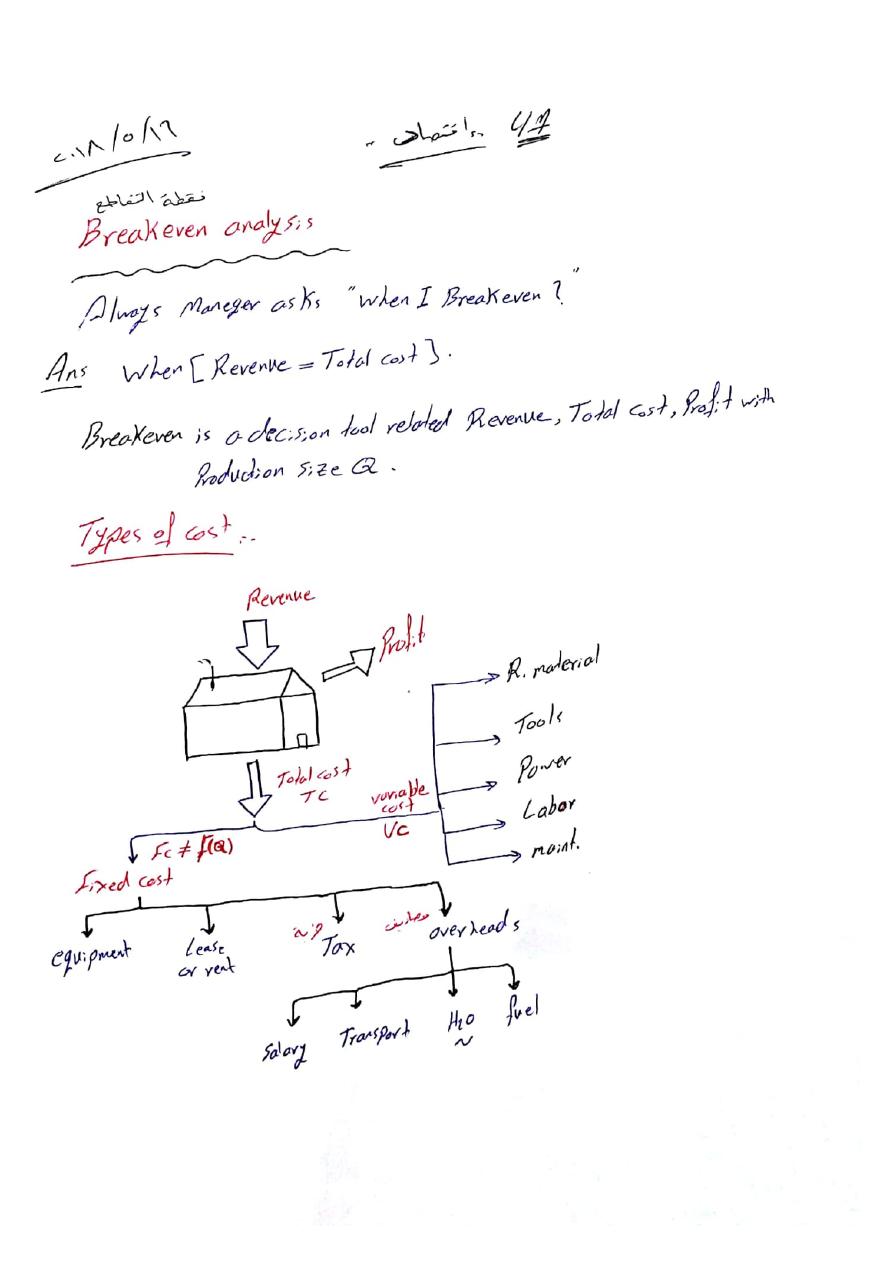 اقتصاد
٢٠١٨/٥/١٦
نقطة التقاطع
Breakeven analysis
Always Maneger asks "when I Breakeven ?"
Ans when [Revenue = Total cost].
Breakeven is a decision tool related Revenue, Total cost, Profit with
Production size Q .
Types of cost ..
Revenue
Profit
R. material
Tools
Power
Labor
maint.
Total cost
TC
variable
cost
VC
FC ≠ f(Q)
Fixed cost
equipment
Lease
or rent
Tax
مصاريف
overheads
Salary
Transport
H2O
fuel